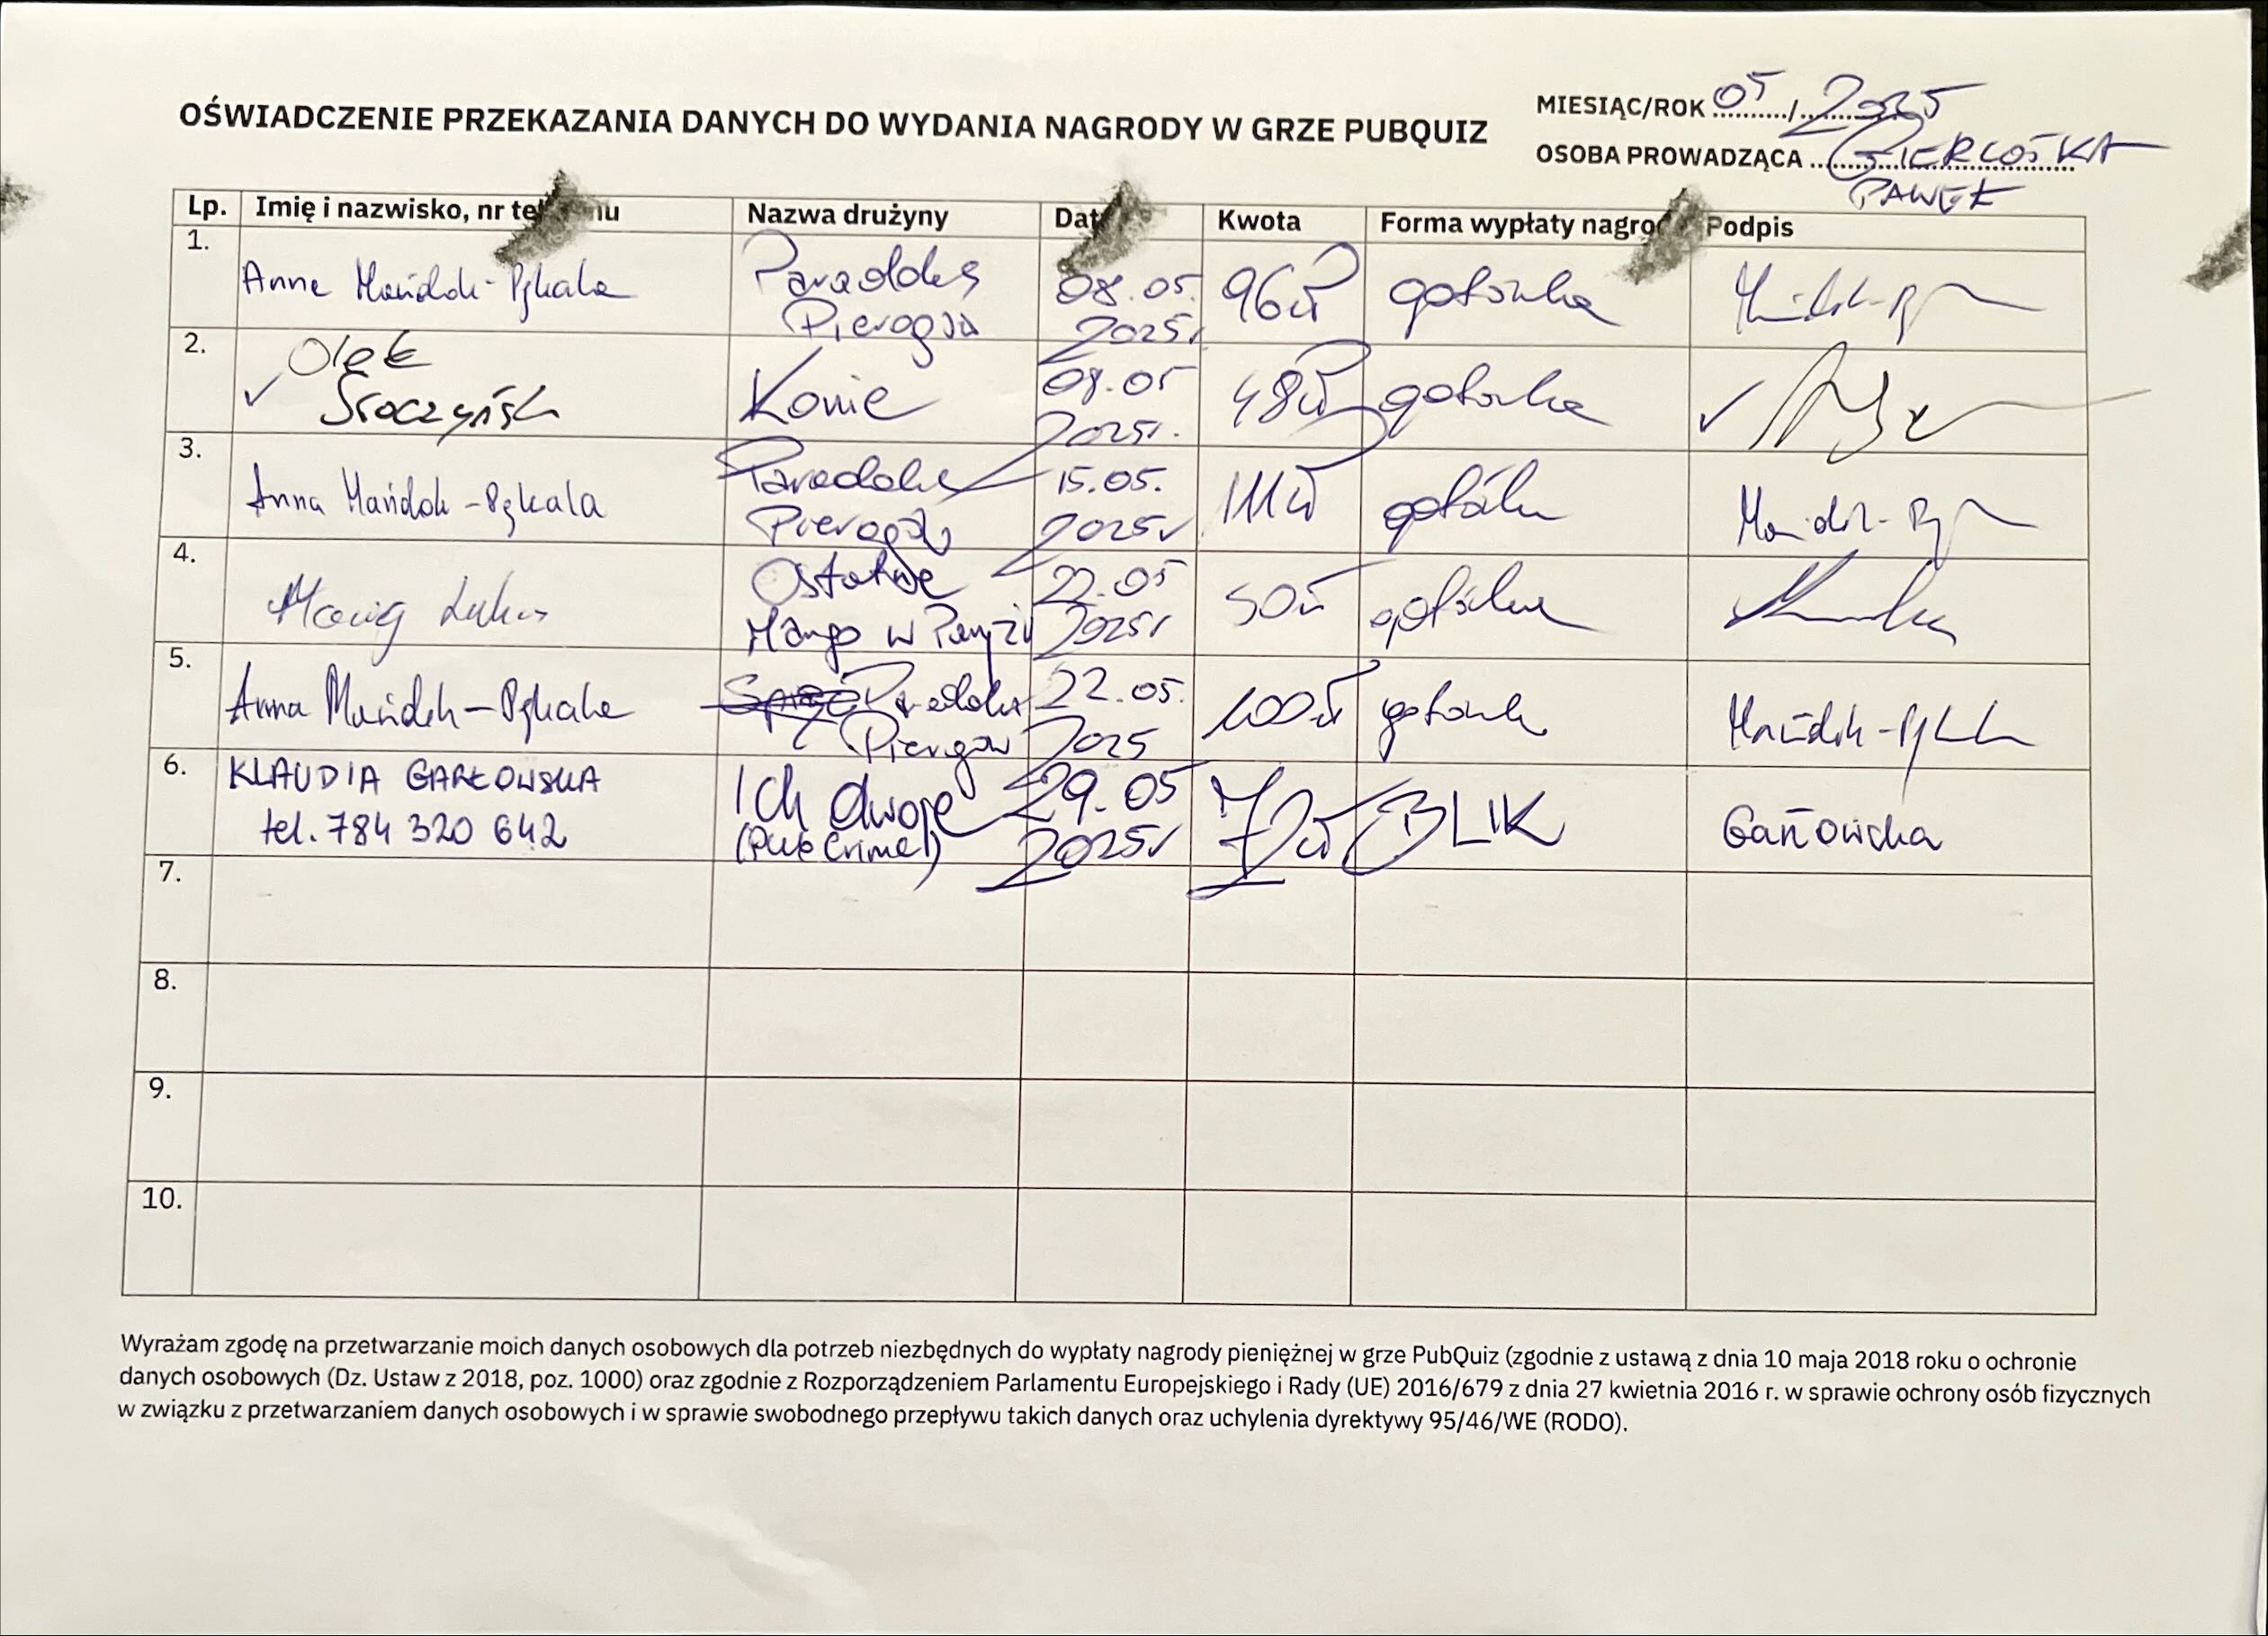 OŚWIADCZENIE PRZEKAZANIA DANYCH DO WYDANIA NAGRODY W GRZE PUBQUIZ
MIESIĄC/ROK 05/2025
OSOBA PROWADZĄCA
PAWEŁ
Lp. Imię i nazwisko, nr Nazwa drużyny Kwota Forma wypłaty Podpis
1. Anna Mańdok-Pękala Paradoks Pierogów 08.05. 2025r 96zł gotówka
2. Olek Konie 08.05 2025r. 48zł gotówka
3. Anna Mańdok-Pękala Paradoks Pierogów 15.05. 2025r 111zł gotówka
4. Ostatnie Mango w Paryżu 22.05 2025r 50zł gotówka
5. Anna Mańdok-Pękala Paradoks Pierogów 22.05. 2025 100zł gotówka
6. KLAUDIA GARŁOWSKA tel. 784 320 642 Ich dwoje (Pub Crime) 29.05 2025r BLIK
7.
8.
9.
10.
Wyrażam zgodę na przetwarzanie moich danych osobowych dla potrzeb niezbędnych do wypłaty nagrody pieniężnej w grze PubQuiz (zgodnie z ustawą z dnia 10 maja 2018 roku o ochronie
danych osobowych (Dz. Ustaw z 2018, poz. 1000) oraz zgodnie z Rozporządzeniem Parlamentu Europejskiego i Rady (UE) 2016/679 z dnia 27 kwietnia 2016 r. w sprawie ochrony osób fizycznych
w związku z przetwarzaniem danych osobowych i w sprawie swobodnego przepływu takich danych oraz uchylenia dyrektywy 95/46/WE (RODO).